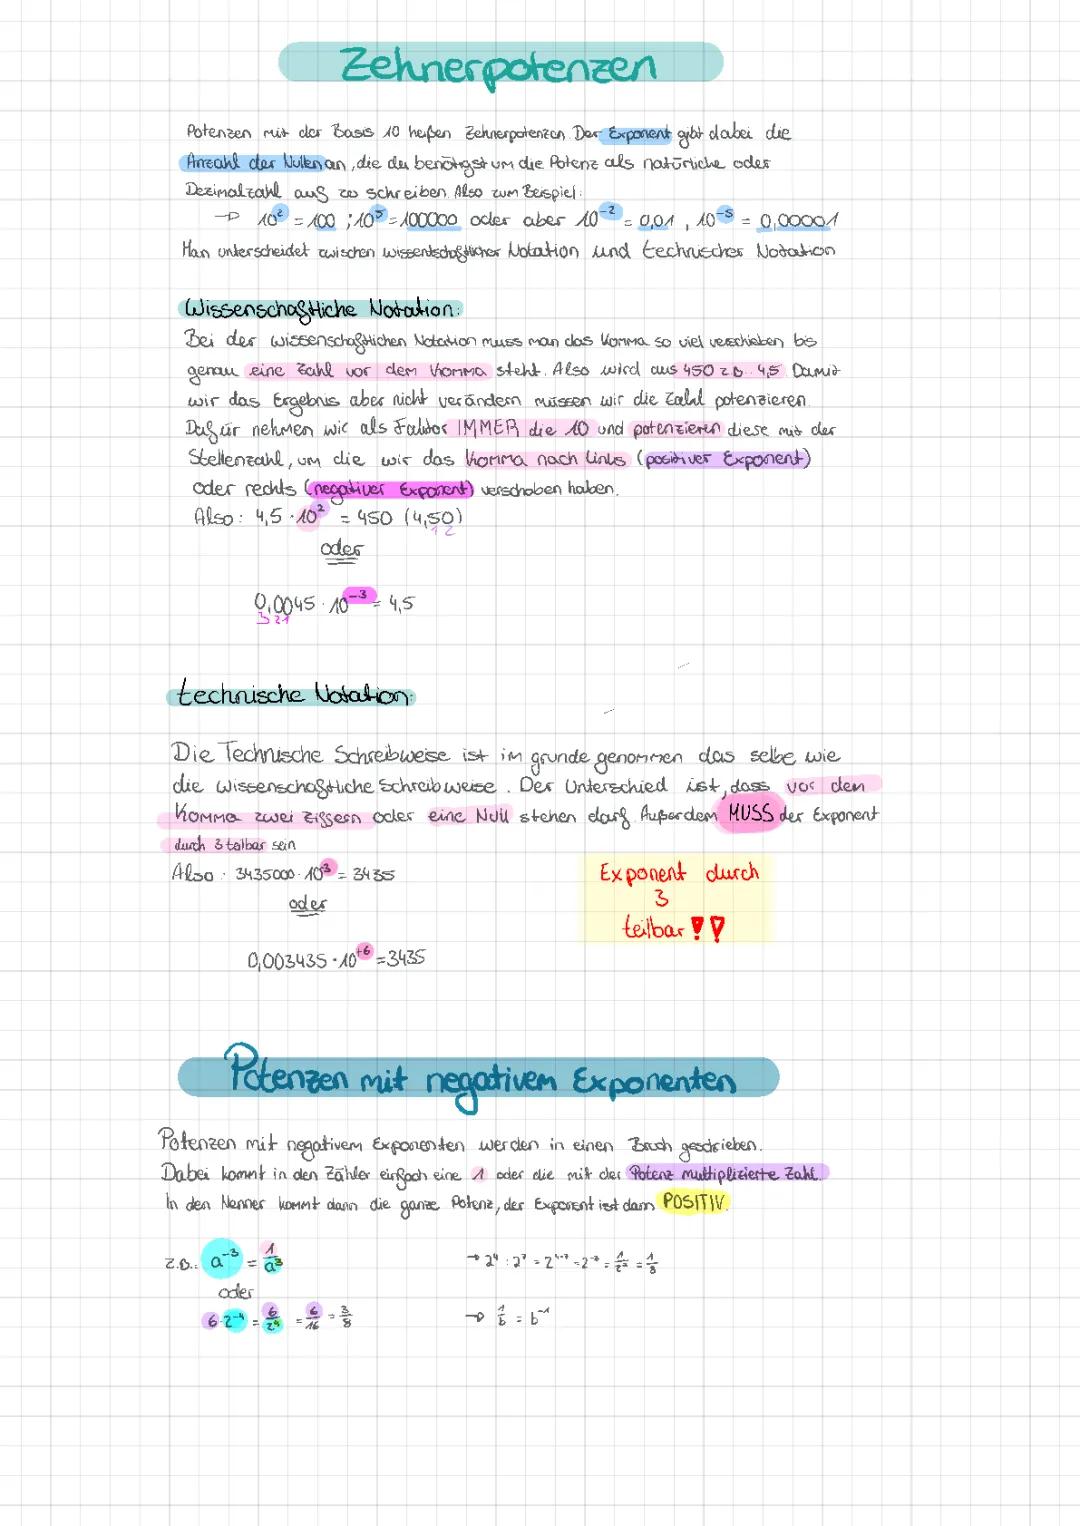 Zehnerpotenzen
Potenzen mit der Basis 10 heißen Zehnerpotenzen. Der Exponent gibt dabei die
Anzahl der Nullen an, die du benötigst um die Potenz als natürliche oder
Dezimalzahl auf zu schreiben. Also zum Beispiel:
→ 10² = 100 ; 10⁵ = 100000 oder aber 10⁻² = 0,01 , 10⁻⁵ = 0,00001
Man unterscheidet zwischen wissentschaftlicher Notation und technischer Notation
Wissenschaftliche Notation:
Bei der wissenschaftlichen Notation muss man das Komma so viel verschieben bis
genau eine Zahl vor dem Komma steht. Also wird aus 450 z.B. 4,5. Damit
wir das Ergebnis aber nicht verändern müssen wir die Zahl potenzieren.
Dafür nehmen wir als Faktor IMMER die 10 und potenzieren diese mit der
Stellenzahl, um die wir das Komma nach links (positiver Exponent)
oder rechts (negativer Exponent) verschoben haben.
Also: 4,5 · 10² = 450 (4,50)
1 2
oder
0,0045 · 10⁻³ = 4,5
3 2 1
technische Notation:
Die Technische Schreibweise ist im grunde genommen das selbe wie
die wissenschaftliche Schreibweise. Der Unterschied ist, dass vor dem
Komma zwei Ziffern oder eine Null stehen darf. Außerdem MUSS der Exponent
durch 3 talbar sein
Also: 3435000 · 10³ = 3435
oder
0,003435 · 10⁺⁶ = 3435
Exponent durch
3
teilbar !!
Potenzen mit negativem Exponenten
Potenzen mit negativem Exponenten werden in einen Bruch geschrieben.
Dabei kommt in den Zähler einfach eine 1 oder die mit der Potenz multiplizierte Zahl.
In den Nenner kommt dann die ganze Potenz, der Exponent ist dann POSITIV.
z.B.: a⁻³ = 1/a³
oder
6·2⁻⁴ = 6/2⁴ = 6/16 = 3/8
→ 2⁴ : 2⁷ = 2⁴⁻⁷ = 2⁻³ = 1/2³ = 1/8
→ 1/b = b⁻¹